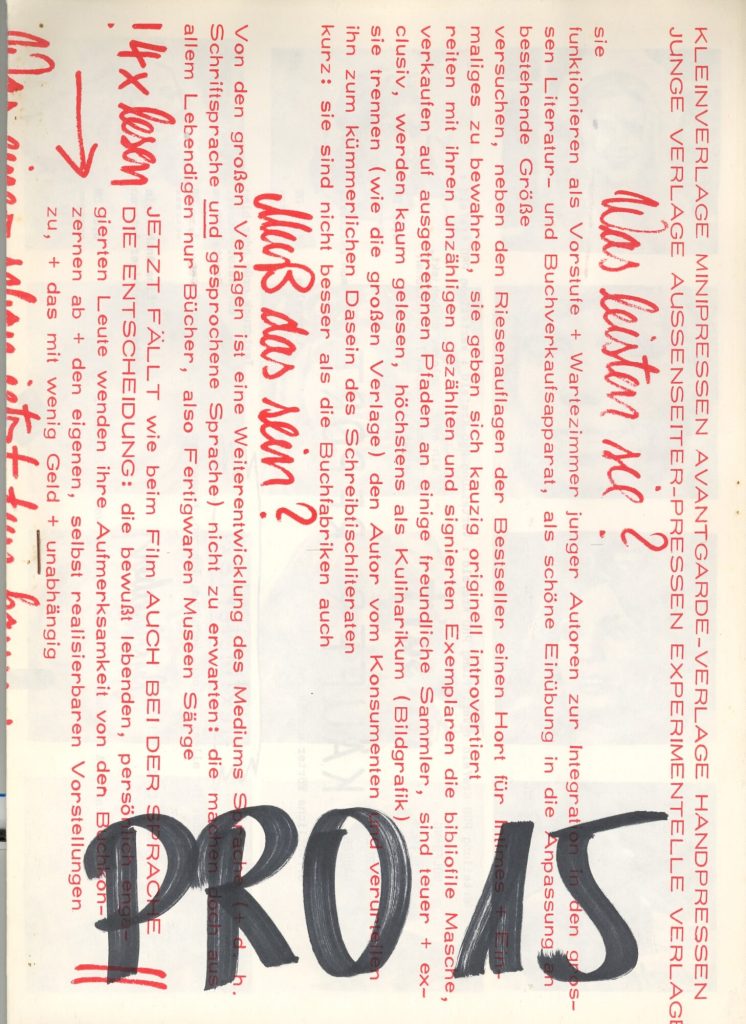 KLEINVERLAGE MINIPRESSEN AVANTGARDE-VERLAGE HANDPRESSEN
JUNGE VERLAGE AUSSENSEITER-PRESSEN EXPERIMENTELLE VERLAGE
Was leisten sie?
sie
funktionieren als Vorstufe + Wartezimmer junger Autoren zur Integration in den gros-
sen Literatur- und Buchverkaufsapparat, als schöne Einübung in die Anpassung an
bestehende Größe
versuchen, neben den Riesenauflagen der Bestseller einen Hort für Intimes + Ein-
maliges zu bewahren, sie geben sich kauzig originell introvertiert
reiten mit ihren unzähligen gezählten und signierten Exemplaren die bibliofile Masche,
verkaufen auf ausgetretenen Pfaden an einige freundliche Sammler, sind teuer + ex-
clusiv, werden kaum gelesen, höchstens als Kulinarikum (Bildgrafik)
sie trennen (wie die großen Verlage) den Autor vom Konsumenten und verurteilen
ihn zum kümmerlichen Dasein des Schreibtischliteraten
kurz: sie sind nicht besser als die Buchfabriken auch
Muß das sein?
Von den großen Verlagen ist eine Weiterentwicklung des Mediums Sprache (+ d. h.
Schriftsprache und gesprochene Sprache) nicht zu erwarten: die machen doch aus
allem Lebendigen nur Bücher, also Fertigwaren Museen Särge
! 4x lesen
JETZT FÄLLT wie beim Film AUCH BEI DER SPRACHE
DIE ENTSCHEIDUNG: die bewußt lebenden, persönlich enga-
gierten Leute wenden ihre Aufmerksamkeit von den Buchkon-
zernen ab + den eigenen, selbst realisierbaren Vorstellungen
zu, + das mit wenig Geld + unabhängig
PRO 15